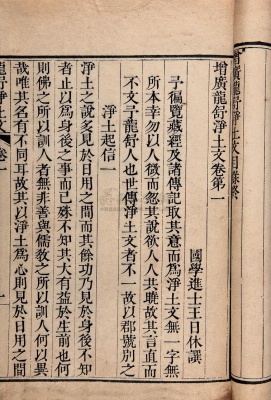 增廣龍舒淨土文目錄終
增廣龍舒淨土文卷第一
國學進士王日休譔
予徧覽藏經及諸傳記取其意而爲淨土文無一字無
所本幸勿以人微而忽其說欲人人共曉故其言直而
不文予龍舒人也世傳淨土文者不一故以郡號別之
淨土起信一
淨土之說多見於日用之間而其餘功乃見於身後不知
者止以爲身後之事而已殊不知其大有益於生前也何
則佛之所以訓人者無非善與儒教之所以訓人何以異
哉唯其名有不同耳故其以淨土爲心則見於日用之間
龍舒淨土文 卷一 一